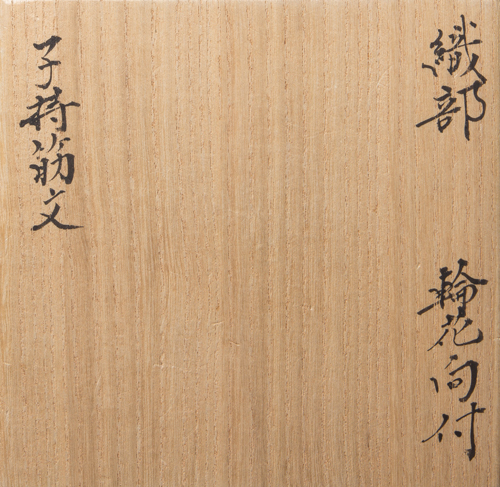 織部　輪花向付
子持筋文